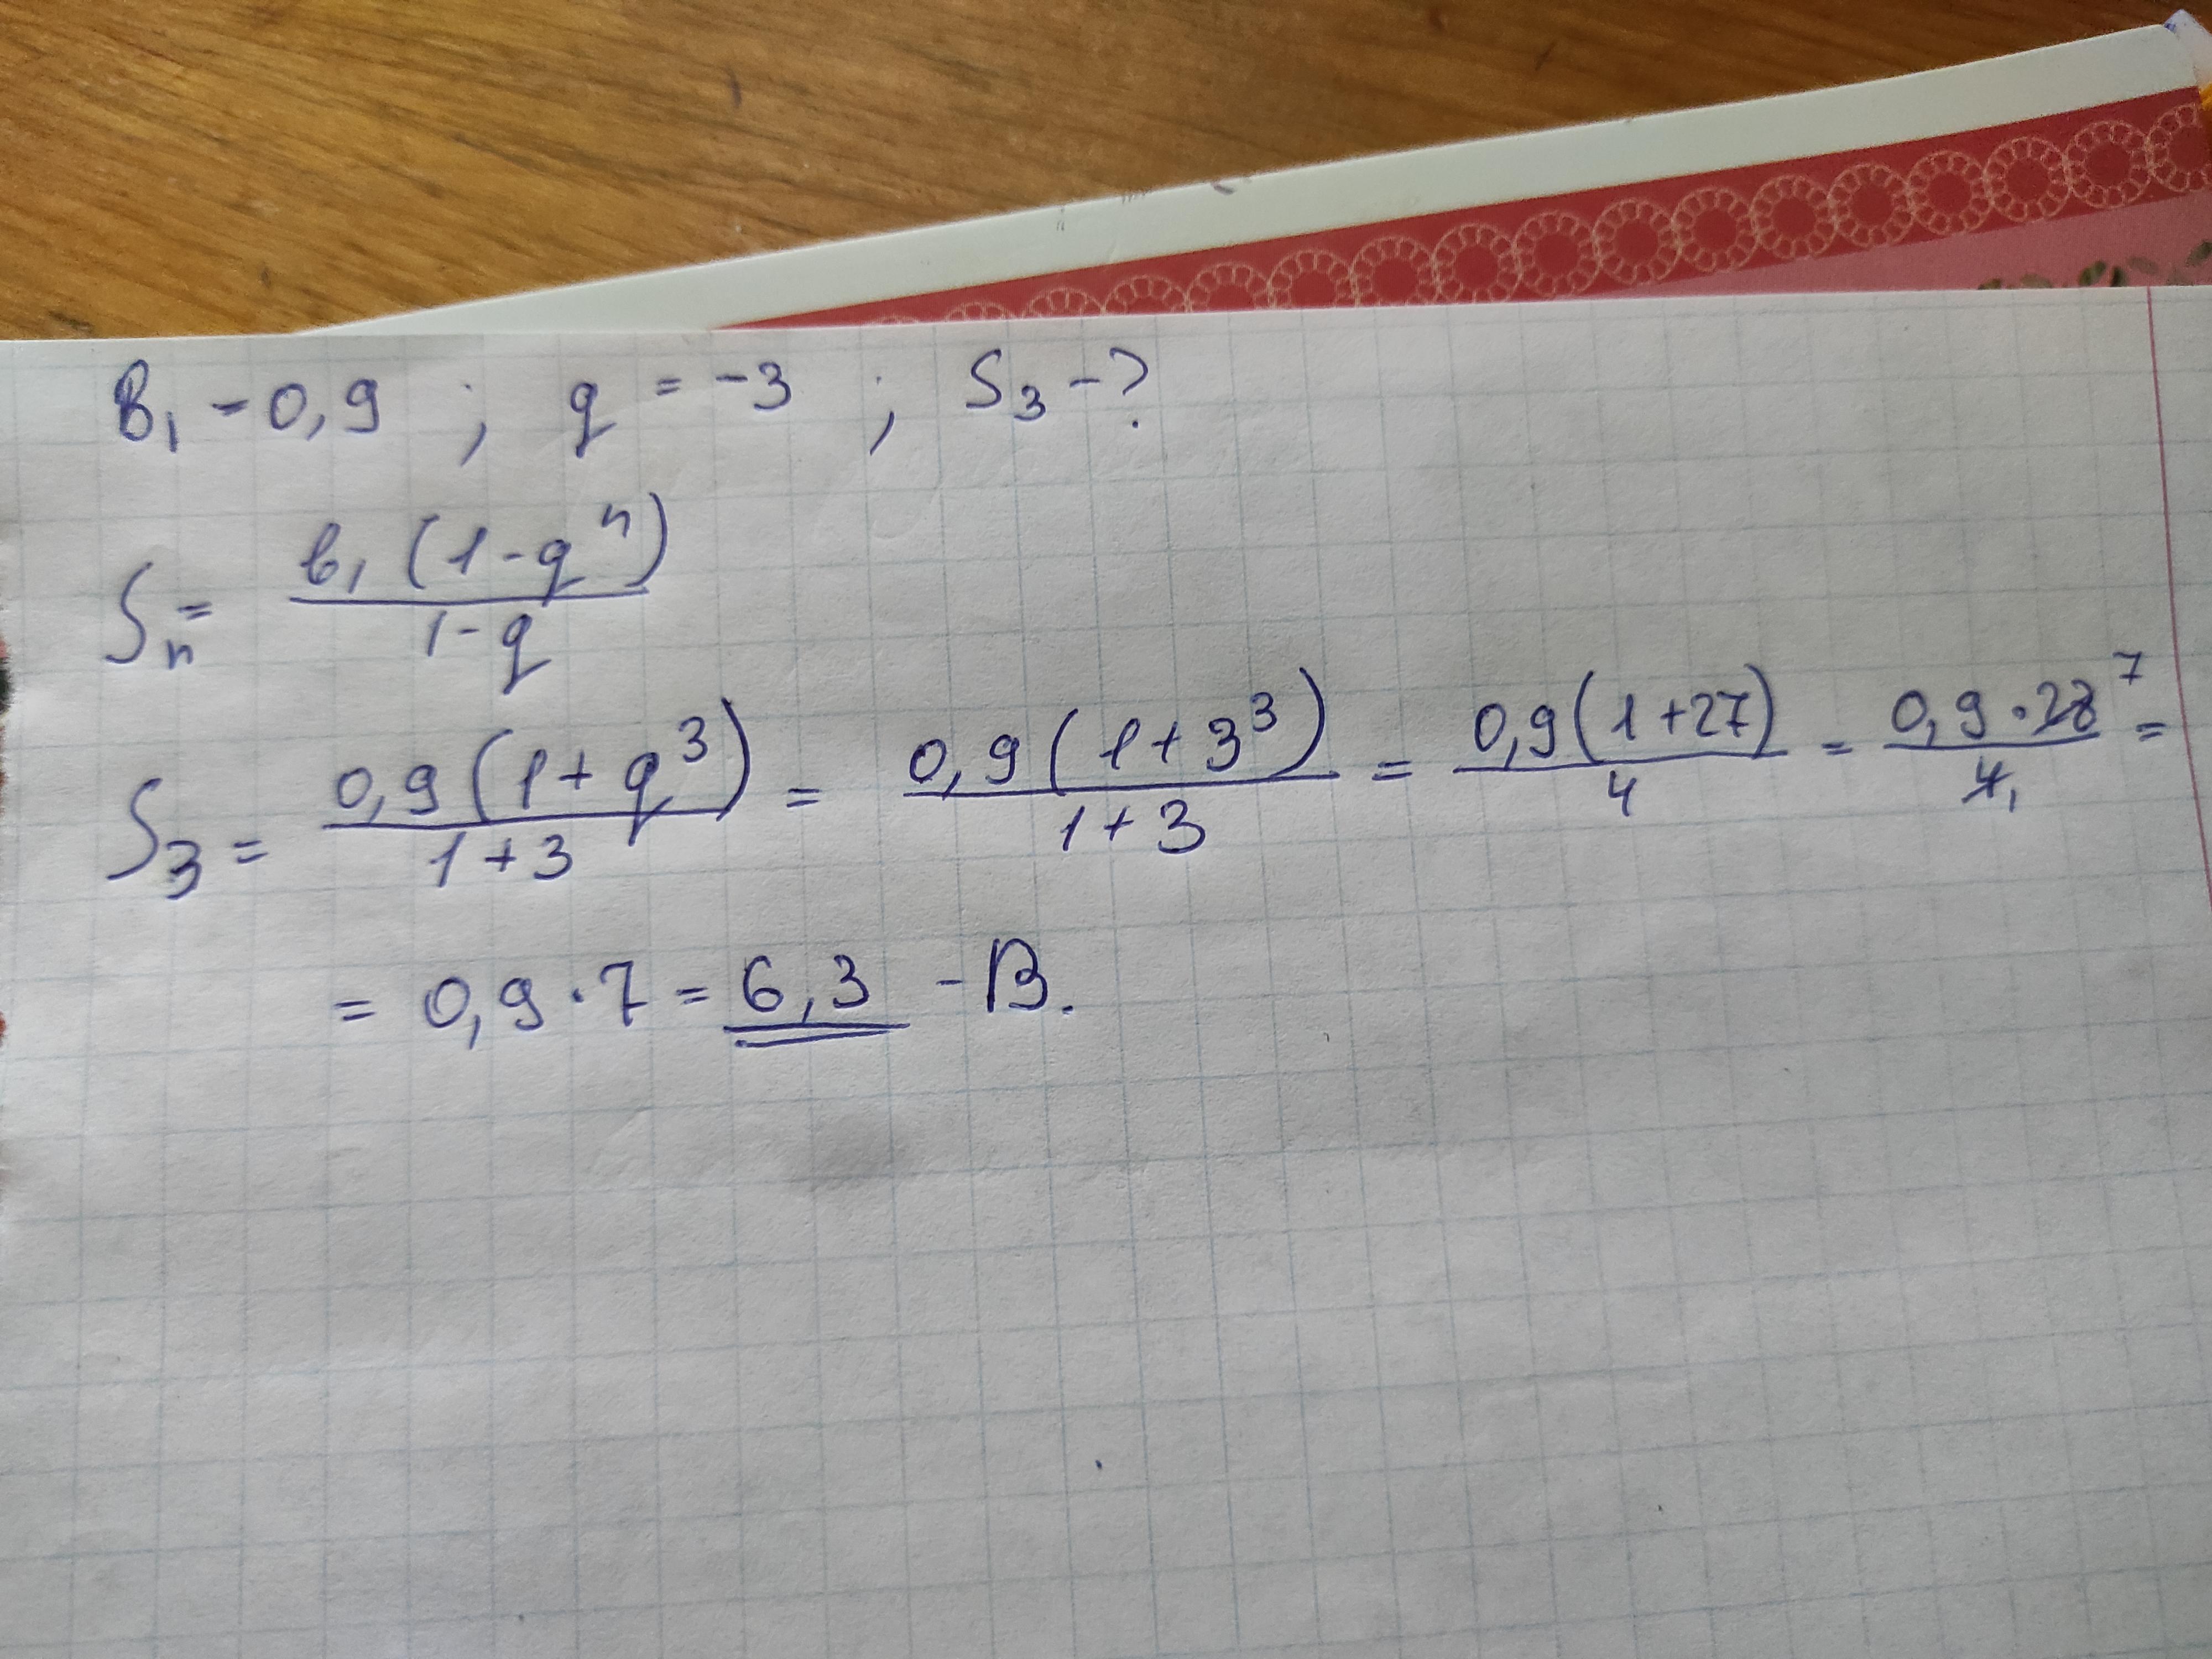 в₁ - 0,9 ; q = -3 ; S₃ - ?
Sₙ = в₁ (1-qⁿ) / 1-q
S₃ = 0,9(1+q³) / 1+3 = 0,9(1+3³) / 1+3 = 0,9(1+27) / 4 = 0,9·28 7 / 4 1 =
= 0,9·7 = 6,3 - В.